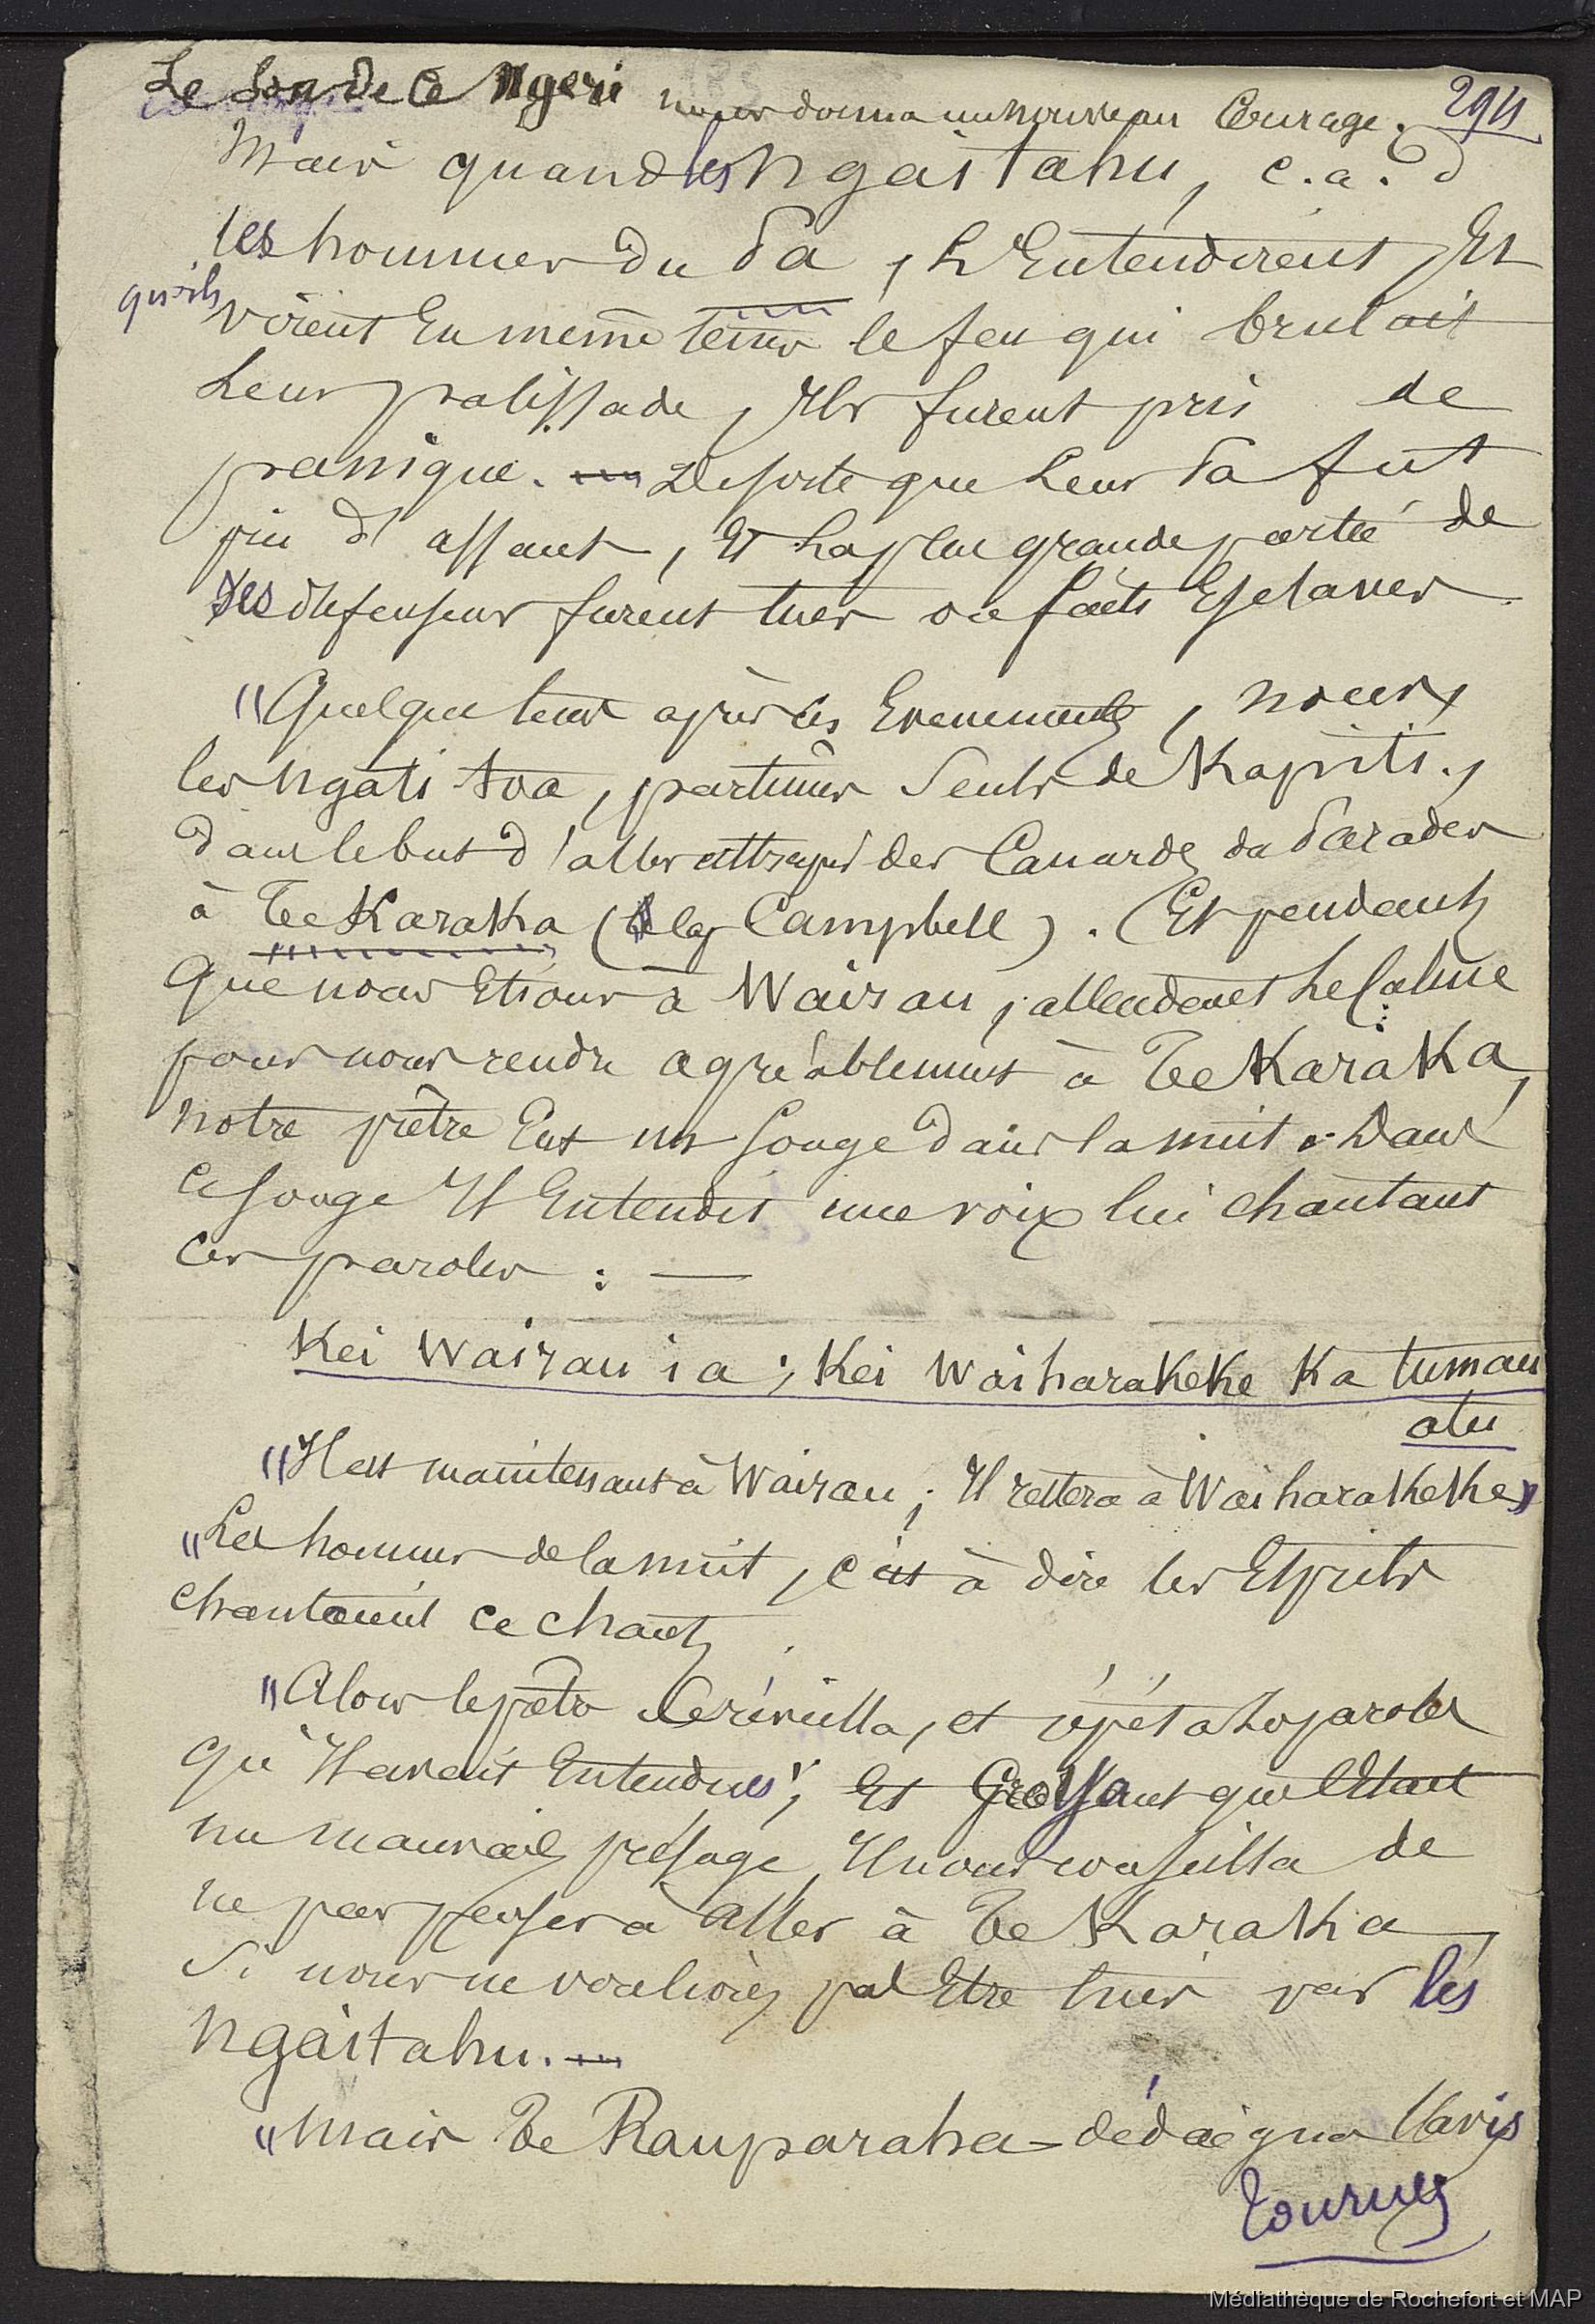 Le Son de ce Ngeri nous donna un nouveau Courage. 294
Mais quand les Ngaitahu, c.a.d
les hommes du Pa, L'Entendirent, Et
qu'ils virent En meme tems le feu qui brulait
Leur palissade, Ils furent pris de
panique. De sorte que Leur Pa fut
pris d'assaut, Et La plus grande partie de
ses defenseurs furent tuer ou faits Esclaves
"Quelque tems après ces Evenements, nous,
les Ngati toa, partimes Seuls de Kapiti,
dans le but d'aller attraper des Canards du Paradis
à Te Karaka (Cap Campbell). Et pendant
Que nous Etions à Wairau, attendant Le Calme
pour nous rendre agréablement à Te Karaka,
notre prêtre Eut un Songe dans la nuit. Dans
ce songe Il Entendit une voix lui chantant
ces paroles : —
Kei Wairau ia ; Kei Waiharakeke Ka tumau
atu
"Il est maintenant à Wairau ; Il restera à Waiharakeke"
"Les hommes de la nuit, c'est à dire les Esprits
chantaient ce chant
"Alors le prêtre se réveilla, et répéta les paroles
Qu'Il avait Entendues ; Et Croyant que C'Etait
un mauvais présage, Il nous conseilla de
ne pas penser à Aller à Te Karaka,
Si nous ne voulions pas Etre tués par les
Ngaitahu.
"Mais Te Rauparaha dédaigna l'avis
Tournez
Médiathèque de Rochefort et MAP